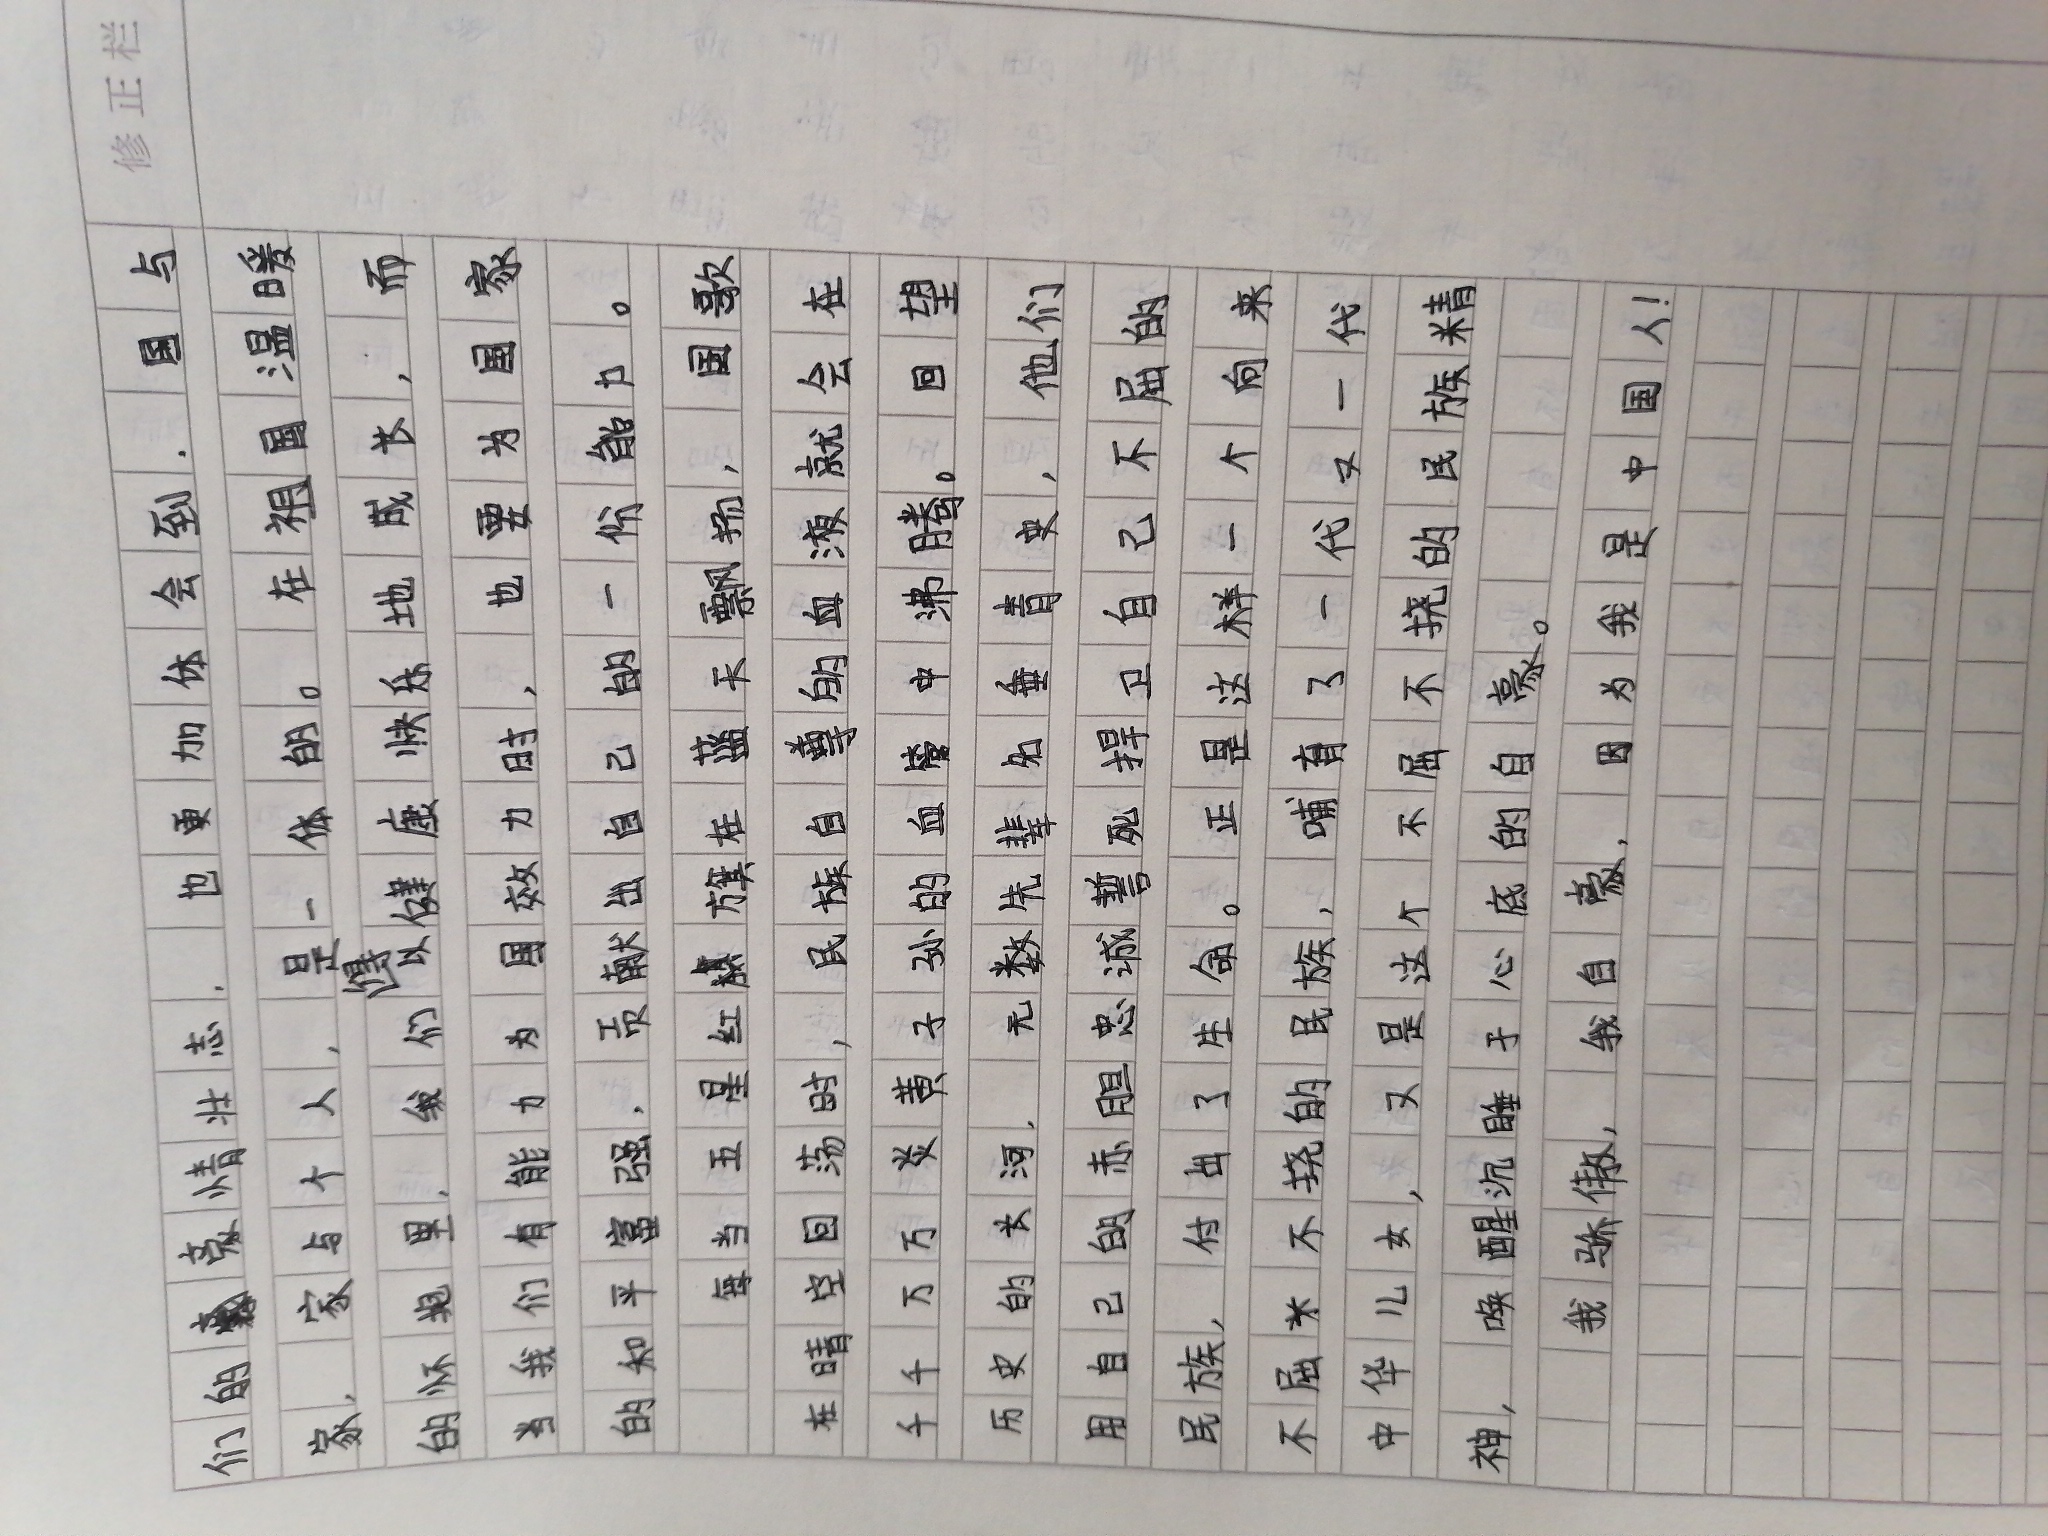 修正栏
们的豪情壮志，也更加休会到，国与
家，家与个人，是一体的。在祖国温暖
的怀抱里，我们得以健康快乐地成长，而
当我们有能力为国效力时，也要为国家
的和平富强，贡献出自己的一份能力。
每当五星红旗在蓝天飘扬，国歌
在晴空回荡时，民族自尊的血液就会在
千千万万炎黄子孙的血管中沸腾。回望
历史的长河，无数先辈名垂青史，他们
用自己的赤胆忠诚誓死捍卫自己不屈的
民族，付出了生命。正是这样一个向来
不屈不挠的民族，哺育了一代又一代
中华儿女，又是这个不屈不挠的民族精
神，唤醒沉睡于心底的自豪。
我骄傲，我自豪，因为我是中国人！